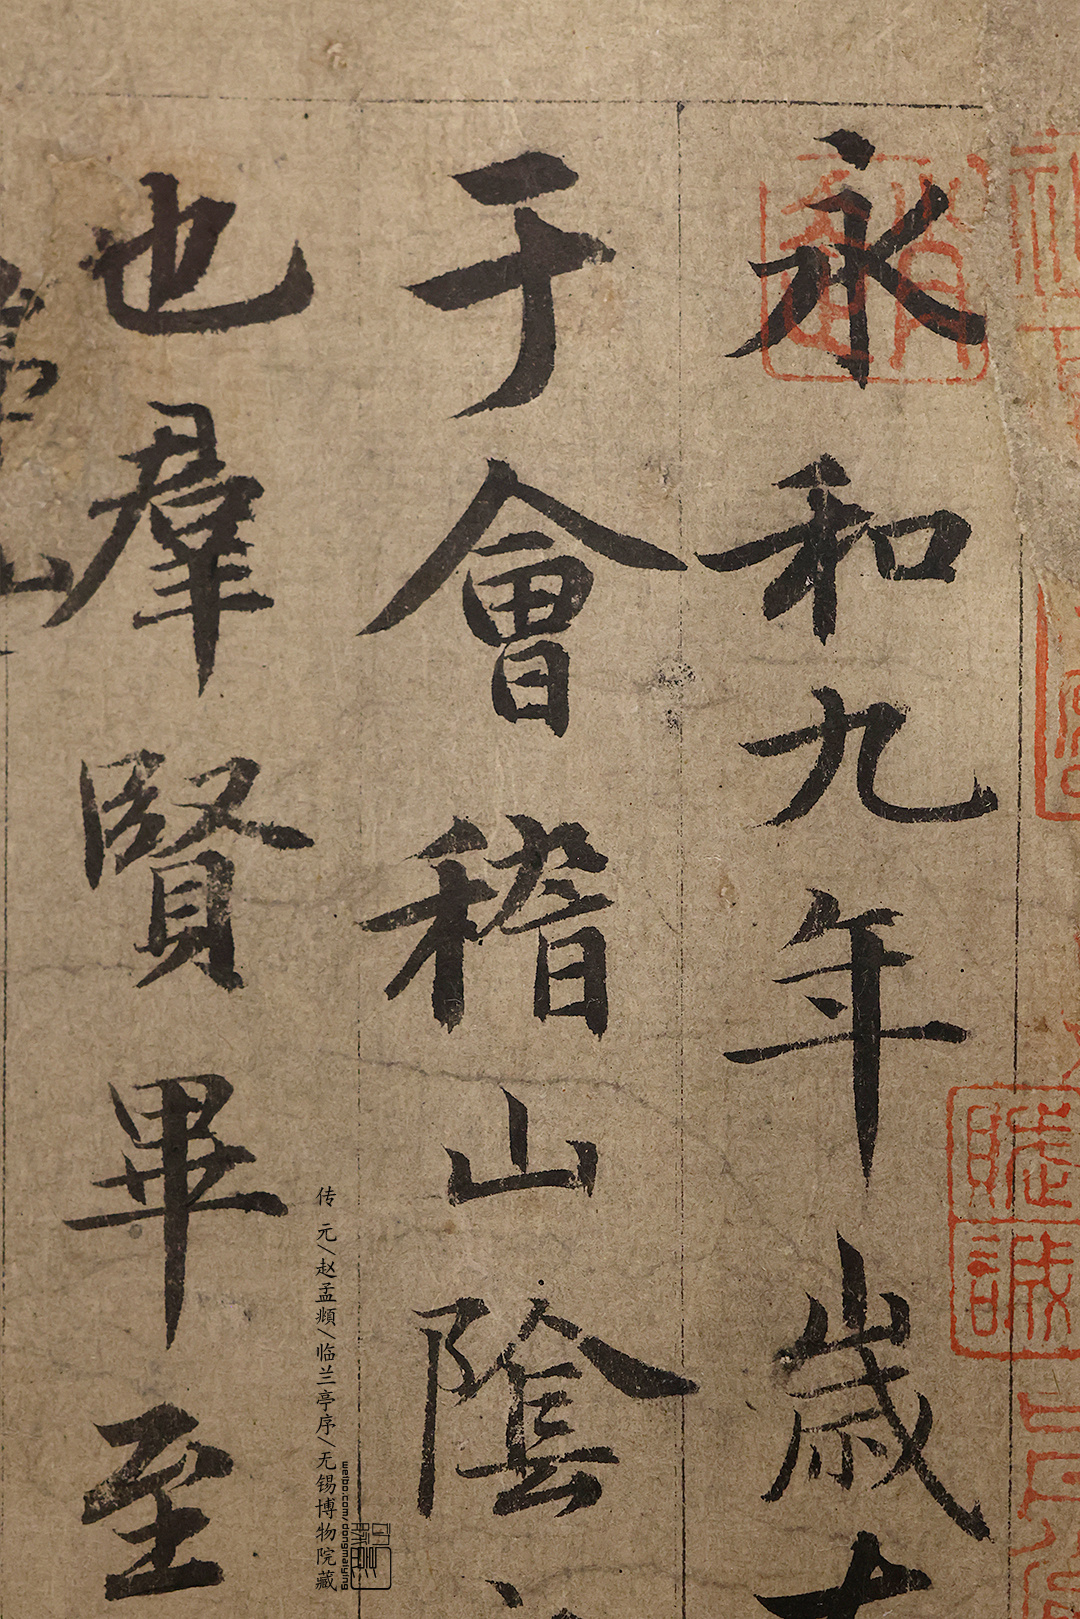 永和九年歲
于會稽山陰
也羣賢畢至
传 元/赵孟頫/临兰亭序/无锡博物院藏
weibo.com/dongmaiying